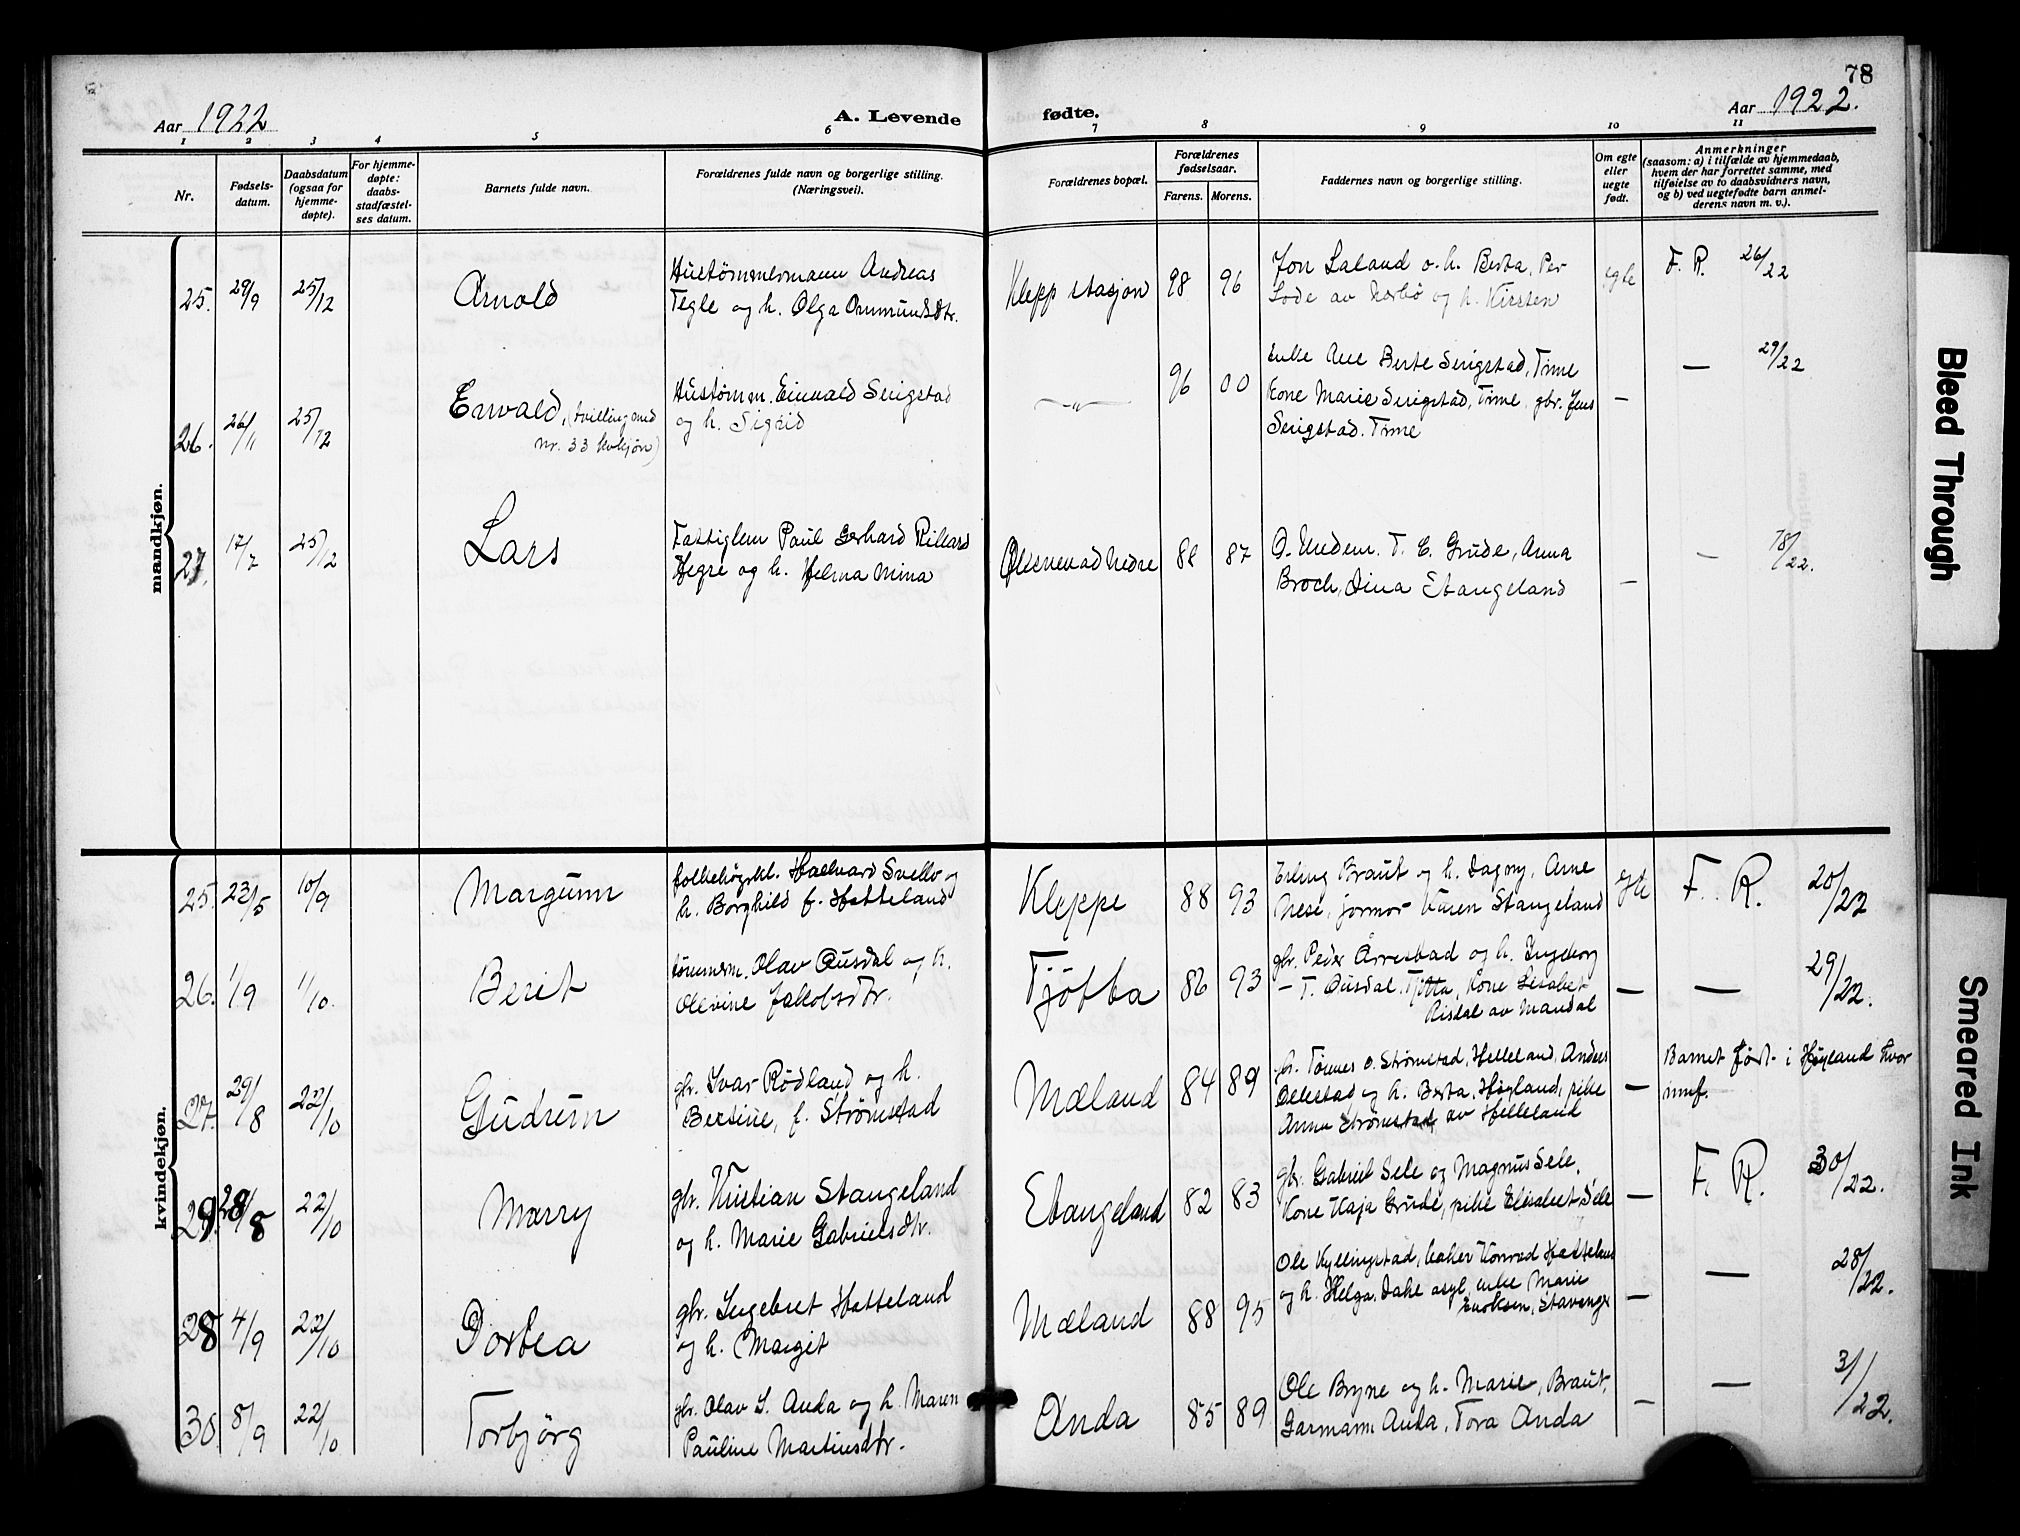 78
Aar 1922
A. Levende fødte.
Aar 1922.
1 2 3 4 5 6 7 8 9 10 11
Nr.
Fødsels-
datum.
Daabsdatum
(ogsaa for
hjemme-
døpte).
For hjemme-
døpte:
daabs-
stadfæstel-
ses datum.
Barnets fulde navn.
Forældrenes fulde navn og borgerlige stilling.
(Næringsvei).
Forældrenes bopæl.
Forældrenes
fødselsaar.
Farens. Morens.
Faddernes navn og borgerlige stilling.
Om egte
eller
uegte
født.
Anmerkninger
(saasom: a) i tilfælde av hjemmedaab,
hvem der har forrettet samme, med
tilføielse av to daabsvidners navn,
og b) ved uegtefødte barn anmel-
derens navn m. v.).
mandkjøn.
25. 29/9 25/12 Arnold
Hustømmermann Andreas
Tegle og h. Olga Ommundsdtr.
Klepp stasjon 98 96
Jon Laland o. h. Berta, Per
Lode av Nærbø og h. Kirsten
egte F. R. 26/22
26. 26/11 25/12 Envald, (tvilling med
nr. 33 kvkjøn)
Hustømm. Einvald Serigstad
og h. Sigrid
—"— 96 00
Enke Ane Berte Serigstad, Time
Kone Marie Serigstad, Time, gbr. Jens
Serigstad. Time
— — 29/22
27. 17/7 25/12 Lars
Fattiglem Paul Gerhard Rikard
Hegre og h. Helma Mina
Øksnevad Nedre 88 87
O. Undem. T. E. Grude, Anna
Broch, Dina Stangeland
— — 78/22.
kvindekjøn.
25. 23/5 10/9 Margunn
folkehøgskl. Hallvard Svello og
h. Borghild f. Hatteland
Kleppe 88 93
Erling Braut og h. Dagny, Arne
Nese, jormor Karen Stangeland
egte F. R. 20/22
26. 1/9 1/10. Berit
tømmerm. Olav Ausdal og h.
Olevine Jakobsdtr.
Tjøtta 86 93
gbr. Peder Årrestad og h. Ingeborg
— T. Ausdal. Tjøtta, Kone Lisabet
Risdal av Mandal
— — 29/22.
27. 29/8 22/10 Gudrun
gbr. Ivar Rødland og h.
Bertine, f. Strømstad
Mæland 84 89
br. Tønnes o. Strømstad, Helleland, Anders
og h. Berta, Høgland, pike
Anna Strømstad, av Helleland
— Barnet født i Høyland hvor
innf.
29. 28/8 22/10 Marry
gbr. Kristian Stangeland
og h. Marie Gabrielsdtr.
Stangeland 82 83
gbr. Gabriel Sele og Magnus Sele,
Kone Kaja Grude, pike Elisabet Sele
— F. R. 30/22.
28 4/9 22/10 Dortea
gbr. Ingebret Hatteland
og h. Margit
Mæland 88 95
Ole Kyllingstad, baker Konrad Hatteland
og h. Helga, Dahe asyl, enke Marie
Enoksen, Stavanger
— — 28/22.
30 8/9 22/10 Torbjørg
gbr. Olav S. Anda og h. Maren
Pauline Martinsdtr.
Anda 85 89
Ole Bryne og h. Marie, Braut,
Garmann Anda, Tora Anda
— — 31/22.
Bleed Through
Smeared Ink